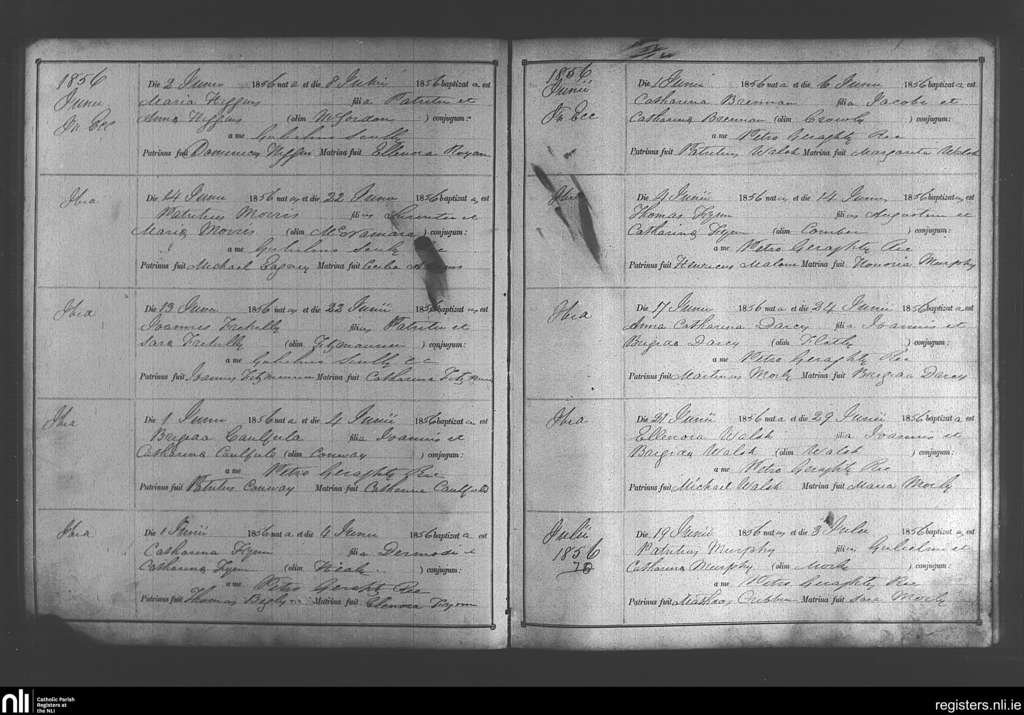 1856
Junii
In Ecc
Die 2 Junii 1856 nata et die 8 Junii 1856 baptizata est
Maria Heffins filia Patritii et
Anna Heffins (olim McJordan) conjugum:
a me Gulielmo Scully
Patrinus fuit Dominicus Heffin Matrina fuit Ellenora
Ibia
Die 14 Junii 1856 natus et die 22 Junii 1856 baptizatus est
Patritius Morris filius et
Maria Morris (olim McNamara) conjugum:
a me Gulielmo
Patrinus fuit Michael Matrina fuit Cecilia
Ibia
Die 13 Junii 1856 natus et die 22 Junii 1856 baptizatus est
Joannes filius Patritii et
Sara (olim Fitzmaurice) conjugum:
a me Gulielmo Scully
Patrinus fuit Joannes Matrina fuit Catharina
Ibia
Die 1 Junii 1856 nata et die 4 Junii 1856 baptizata est
Brigida filia Joannis et
Catharina (olim Conway) conjugum:
a me Petro Geraghty
Patrinus fuit Patritius Conway Matrina fuit Catharina Caulfield
Ibia
Die 1 Junii 1856 nata et die 4 Junii 1856 baptizata est
Catharina Flynn filia Dermodi et
Catharina Flynn (olim) conjugum:
a me Petro Geraghty
Patrinus fuit Thomas Matrina fuit Elenora
1856
Junii
In Ecc
Die 1 Junii 1856 nata et die 6 Junii 1856 baptizata est
Catharina Brennan filia Jacobi et
Catharina Brennan (olim Crowly) conjugum:
a me Petro Geraghty
Patrinus fuit Patritius Walsh Matrina fuit Margarita Walsh
Ibia
Die 9 Junii 1856 natus et die 14 Junii 1856 baptizatus est
Thomas Flynn filius Augustini et
Catharina Flynn (olim Comber) conjugum:
a me Petro Geraghty
Patrinus fuit Henricus Malone Matrina fuit Honoria Murphy
Ibia
Die 17 Junii 1856 nata et die 24 Junii 1856 baptizata est
Anna Catharina Darcy filia Joannis et
Brigida Darcy (olim) conjugum:
a me Petro Geraghty
Patrinus fuit Martinus Morly Matrina fuit Brigida Darcy
Ibia
Die 21 Junii 1856 nata et die 29 Junii 1856 baptizata est
Ellenora Walsh filia Joannis et
Brigida Walsh (olim Walsh) conjugum:
a me Petro Geraghty
Patrinus fuit Michael Walsh Matrina fuit Maria Morly
Julii
1856
Die 19 Junii 1856 natus et die 3 Julii 1856 baptizatus est
Patritius Murphy filius Gulielmi et
Catharina Murphy (olim) conjugum:
a me Petro Geraghty
Patrinus fuit Mathias Cribbin Matrina fuit Sara Morly
nli
Catholic Parish
Registers at
the NLI
registers.nli.ie